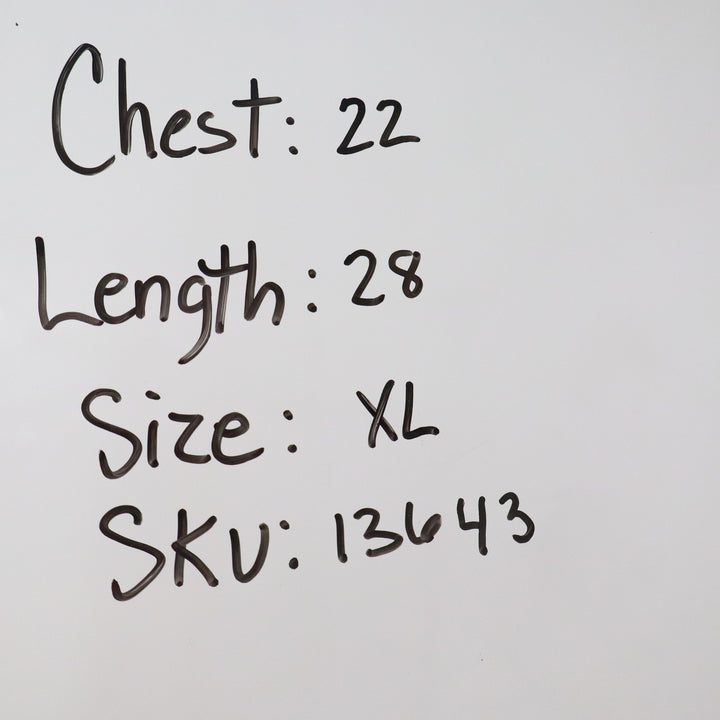 Chest: 22
Length: 28
Size: XL
SKU: 13643